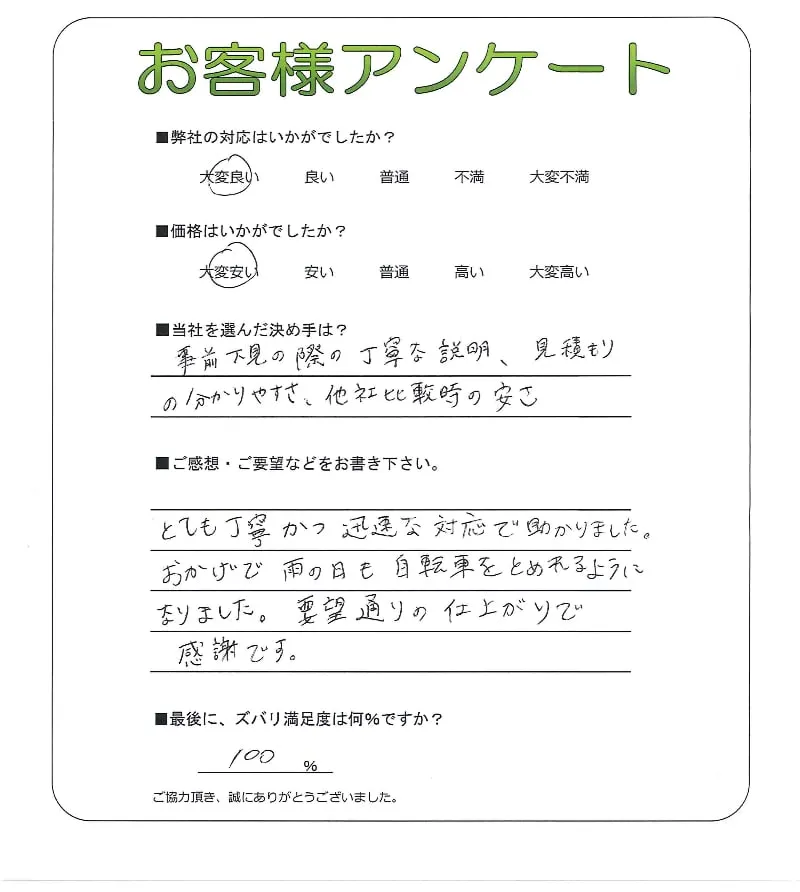 お客様アンケート
■弊社の対応はいかがでしたか？
大変良い 良い 普通 不満 大変不満
■価格はいかがでしたか？
大変安い 安い 普通 高い 大変高い
■当社を選んだ決め手は？
事前下見の際の丁寧な説明、見積もり
の分かりやすさ、他社比較時の安さ
■ご感想・ご要望などをお書き下さい。
とても丁寧かつ迅速な対応で助かりました。
おかげで雨の日も自転車をとめれるように
なりました。要望通りの仕上がりで
感謝です。
■最後に、ズバリ満足度は何%ですか？
100 %
ご協力頂き、誠にありがとうございました。